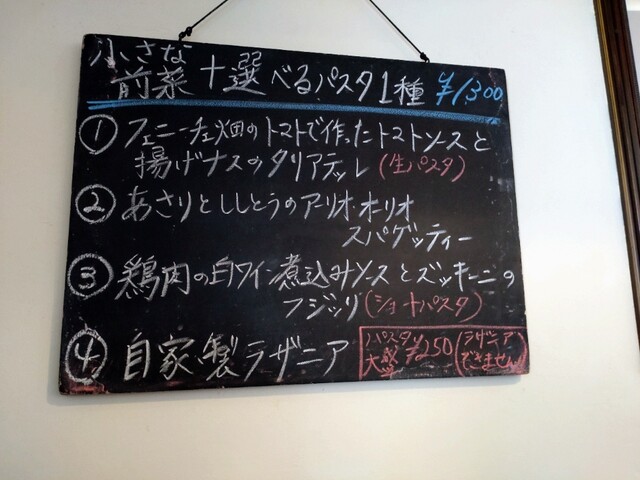 小さな
前菜+選べるパスタ1種 ¥1300
① フェニーチェ畑のトマトで作ったトマトソースと
揚げナスのタリアテッレ(生パスタ)
② あさりとししとうのアーリオ・オーリオ
スパゲッティー
③ 鶏肉の白ワイン煮込みソースとズッキーニの
フジッリ(ショートパスタ)
④ 自家製ラザニア
パスタ
大盛 ¥250
(ラザニア
できません)